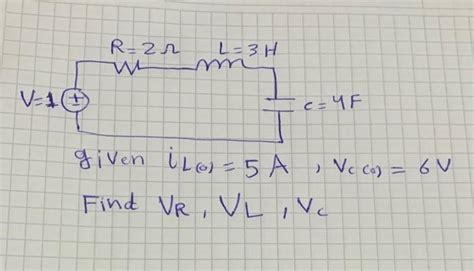 R=2Ω L=3H
V=1 C=4F
given iL(0)=5A , Vc(0)=6V
Find VR, VL, Vc